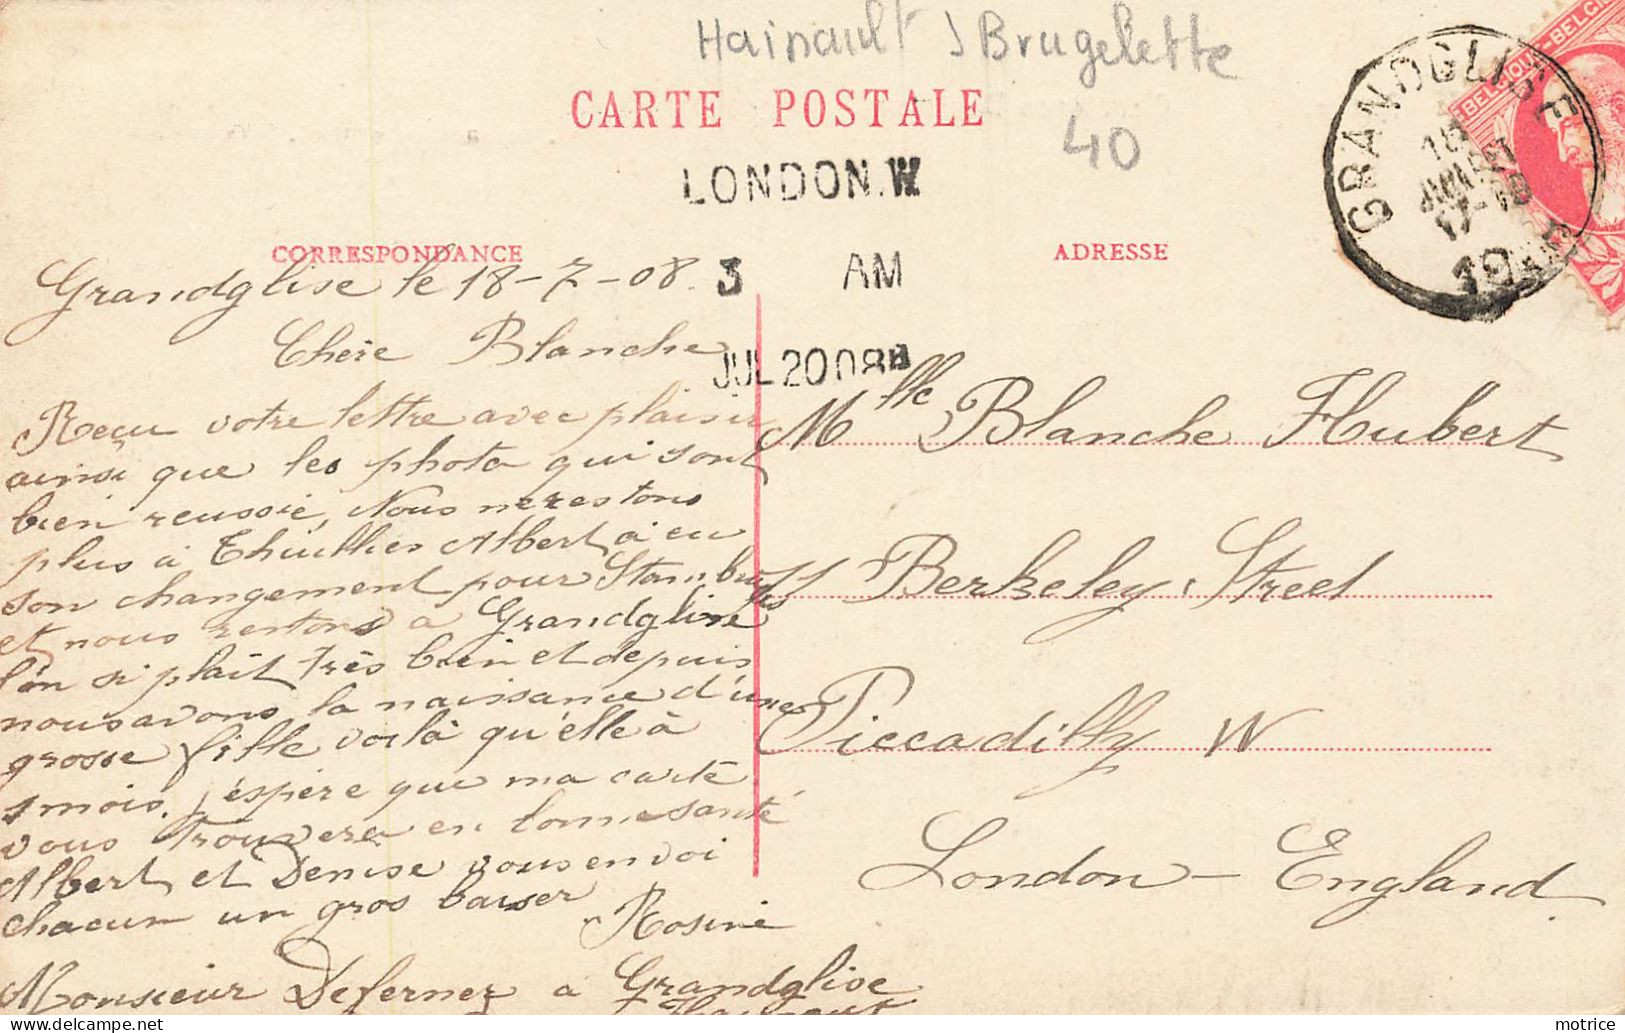 Hainault J Brugelette
CARTE POSTALE
40
LONDON.W
3 AM
JUL 20 08
GRANDGLISE
18
17-18
BELGIQUE-BELGIE
CORRESPONDANCE
ADRESSE
Grandglise le 18-7-08.
Chère Blanche
Reçu votre lettre avec plaisir
ainsi que les photo qui sont
bien reussie, Nous nerestons
plus à Thieullies Albert à eu
son changement pour Stambruges
et nous restons a Grandglise
l'on si plait très bien et depuis
nousavons la naissance d'une
grosse fille voilà qu'elle à
mois. j'éspère que ma carte
vous trouvera en bonnesanté
Albert et Denise vous envoi
chacun un gros baiser
Rosine
Monsieur Defernez a Grandglise
Hainaut
Mlle Blanche Hubert
Berkeley Street
Piccadilly W
London - England.
motrice